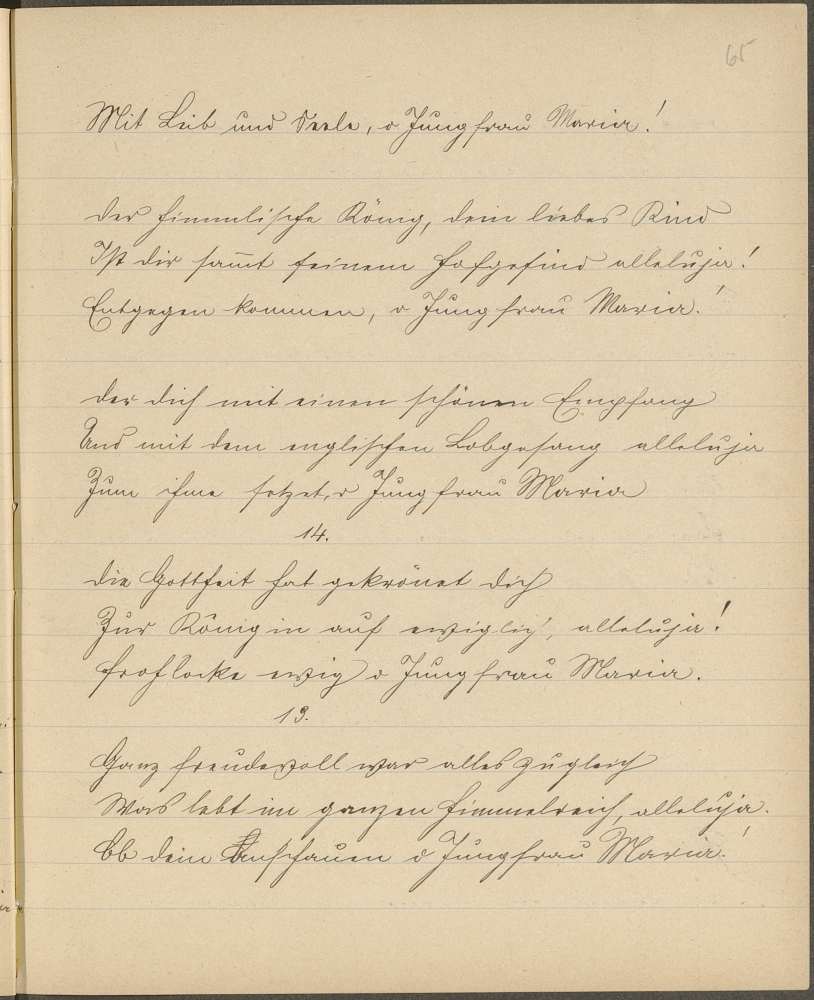 65
Mit Leib und Seele, o Jungfrau Maria!
Der himmlische König, dein liebes Kind
Ist dir sam̄t seinem Hofgesind alleluja!
Entgegen kommen, o Jungfrau Maria!
Der dich mit einen schönen Empfang
Und mit dem englischen Lobgesang alleluja
Zum ihme setzet, o Jungfrau Maria
14.
Die Gottheit hat gekrönet dich
Zur Königin auf ewiglich, alleluja!
Frohlocke ewig o Jungfrau Maria.
13.
Ganz freudevoll war alles zugleich
Was lebt im ganzen Himmelreich, alleluja.
Ob dein Anschauen o Jungfrau Maria!